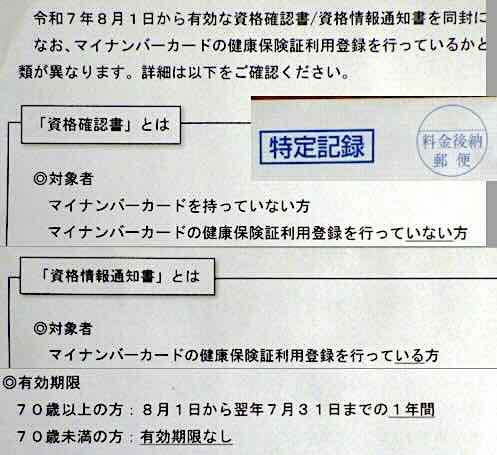 令和７年８月１日から有効な資格確認書/資格情報通知書を同封に
なお、マイナンバーカードの健康保険証利用登録を行っているかと
類が異なります。詳細は以下をご確認ください。
「資格確認書」とは
特定記録
料金後納
郵便
◎対象者
マイナンバーカードを持っていない方
マイナンバーカードの健康保険証利用登録を行っていない方
「資格情報通知書」とは
◎対象者
マイナンバーカードの健康保険証利用登録を行っている方
◎有効期限
７０歳以上の方：８月１日から翌年７月３１日までの１年間
７０歳未満の方：有効期限なし